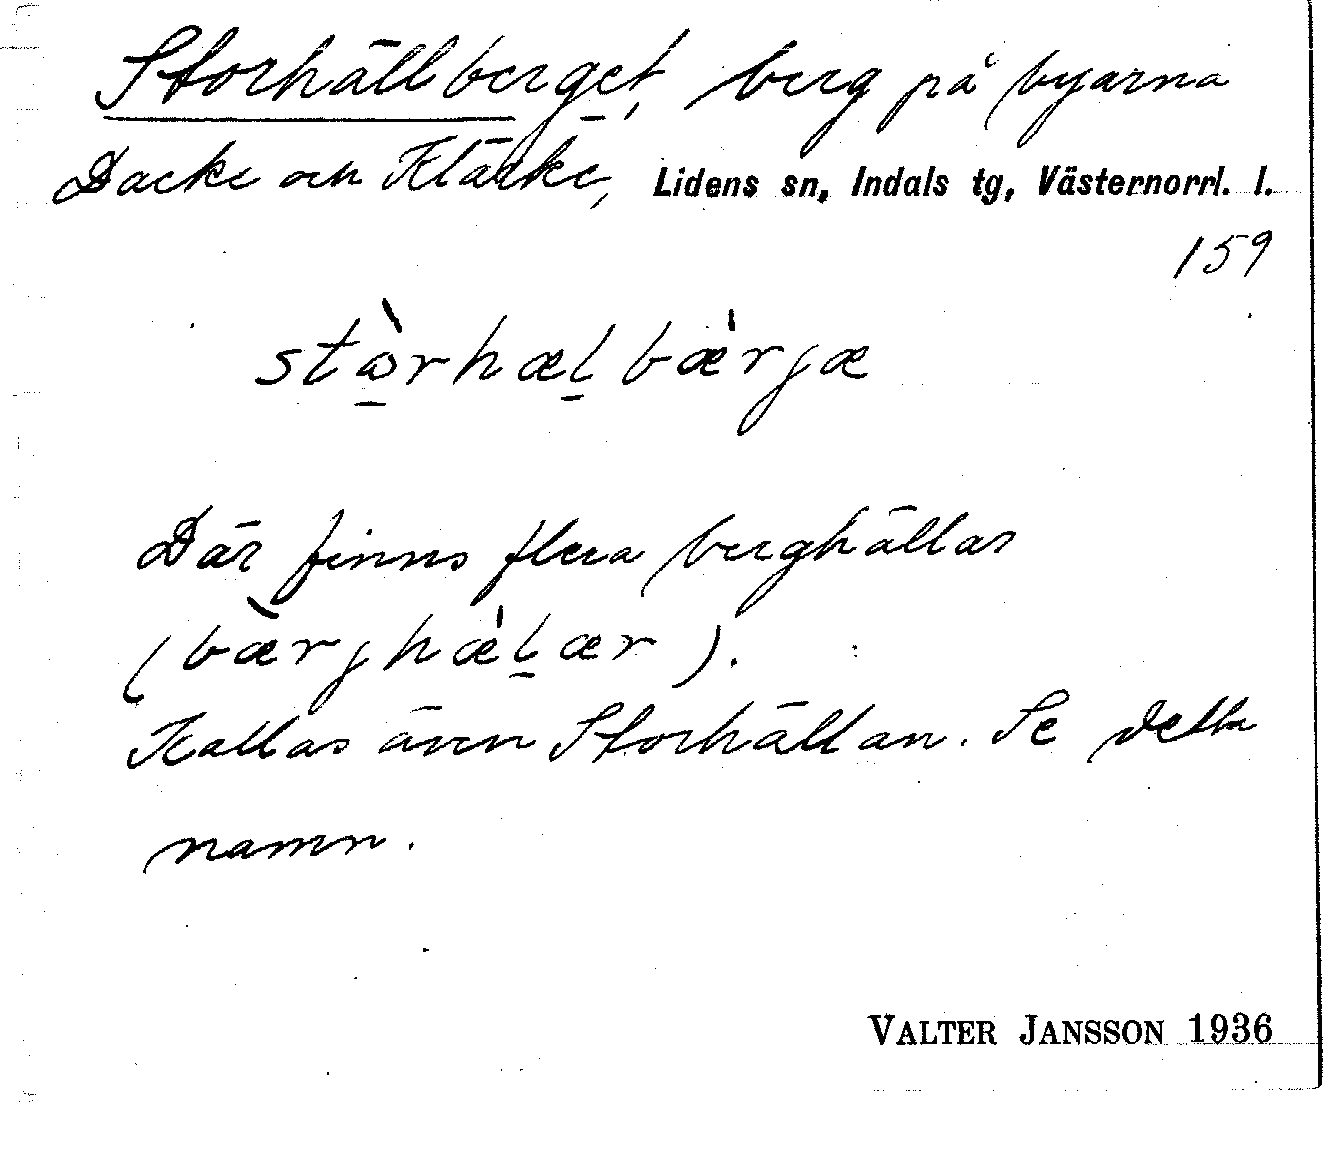 Storhällberget, berg på byarna
Dacke och Klärke, Lidens sn, Indals tg, Västernorrl. l.
159
stɷ̀rhæl bæ̀rjæ
Där finns flera berghällar
(bæ̀rjhæ̀lær).
Kallas även Storhällan. Se detta
namn.
VALTER JANSSON 1936